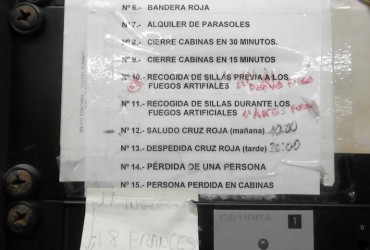 Nº 6.- BANDERA ROJA
Nº 7.- ALQUILER DE PARASOLES
Nº 8.- CIERRE CABINAS EN 30 MINUTOS.
Nº 9.- CIERRE CABINAS EN 15 MINUTOS.
Nº 10.- RECOGIDA DE SILLAS PREVIA A LOS
FUEGOS ARTIFIALES
Nº 11.- RECOGIDA DE SILLAS DURANTE LOS
FUEGOS ARTIFICIALES
Nº 12.- SALUDO CRUZ ROJA (mañana) 10:00
Nº 13.- DESPEDIDA CRUZ ROJA (tarde) 20:00
Nº 14.- PÉRDIDA DE UNA PERSONA
Nº 15.- PERSONA PERDIDA EN CABINAS
18 FRANCES
1